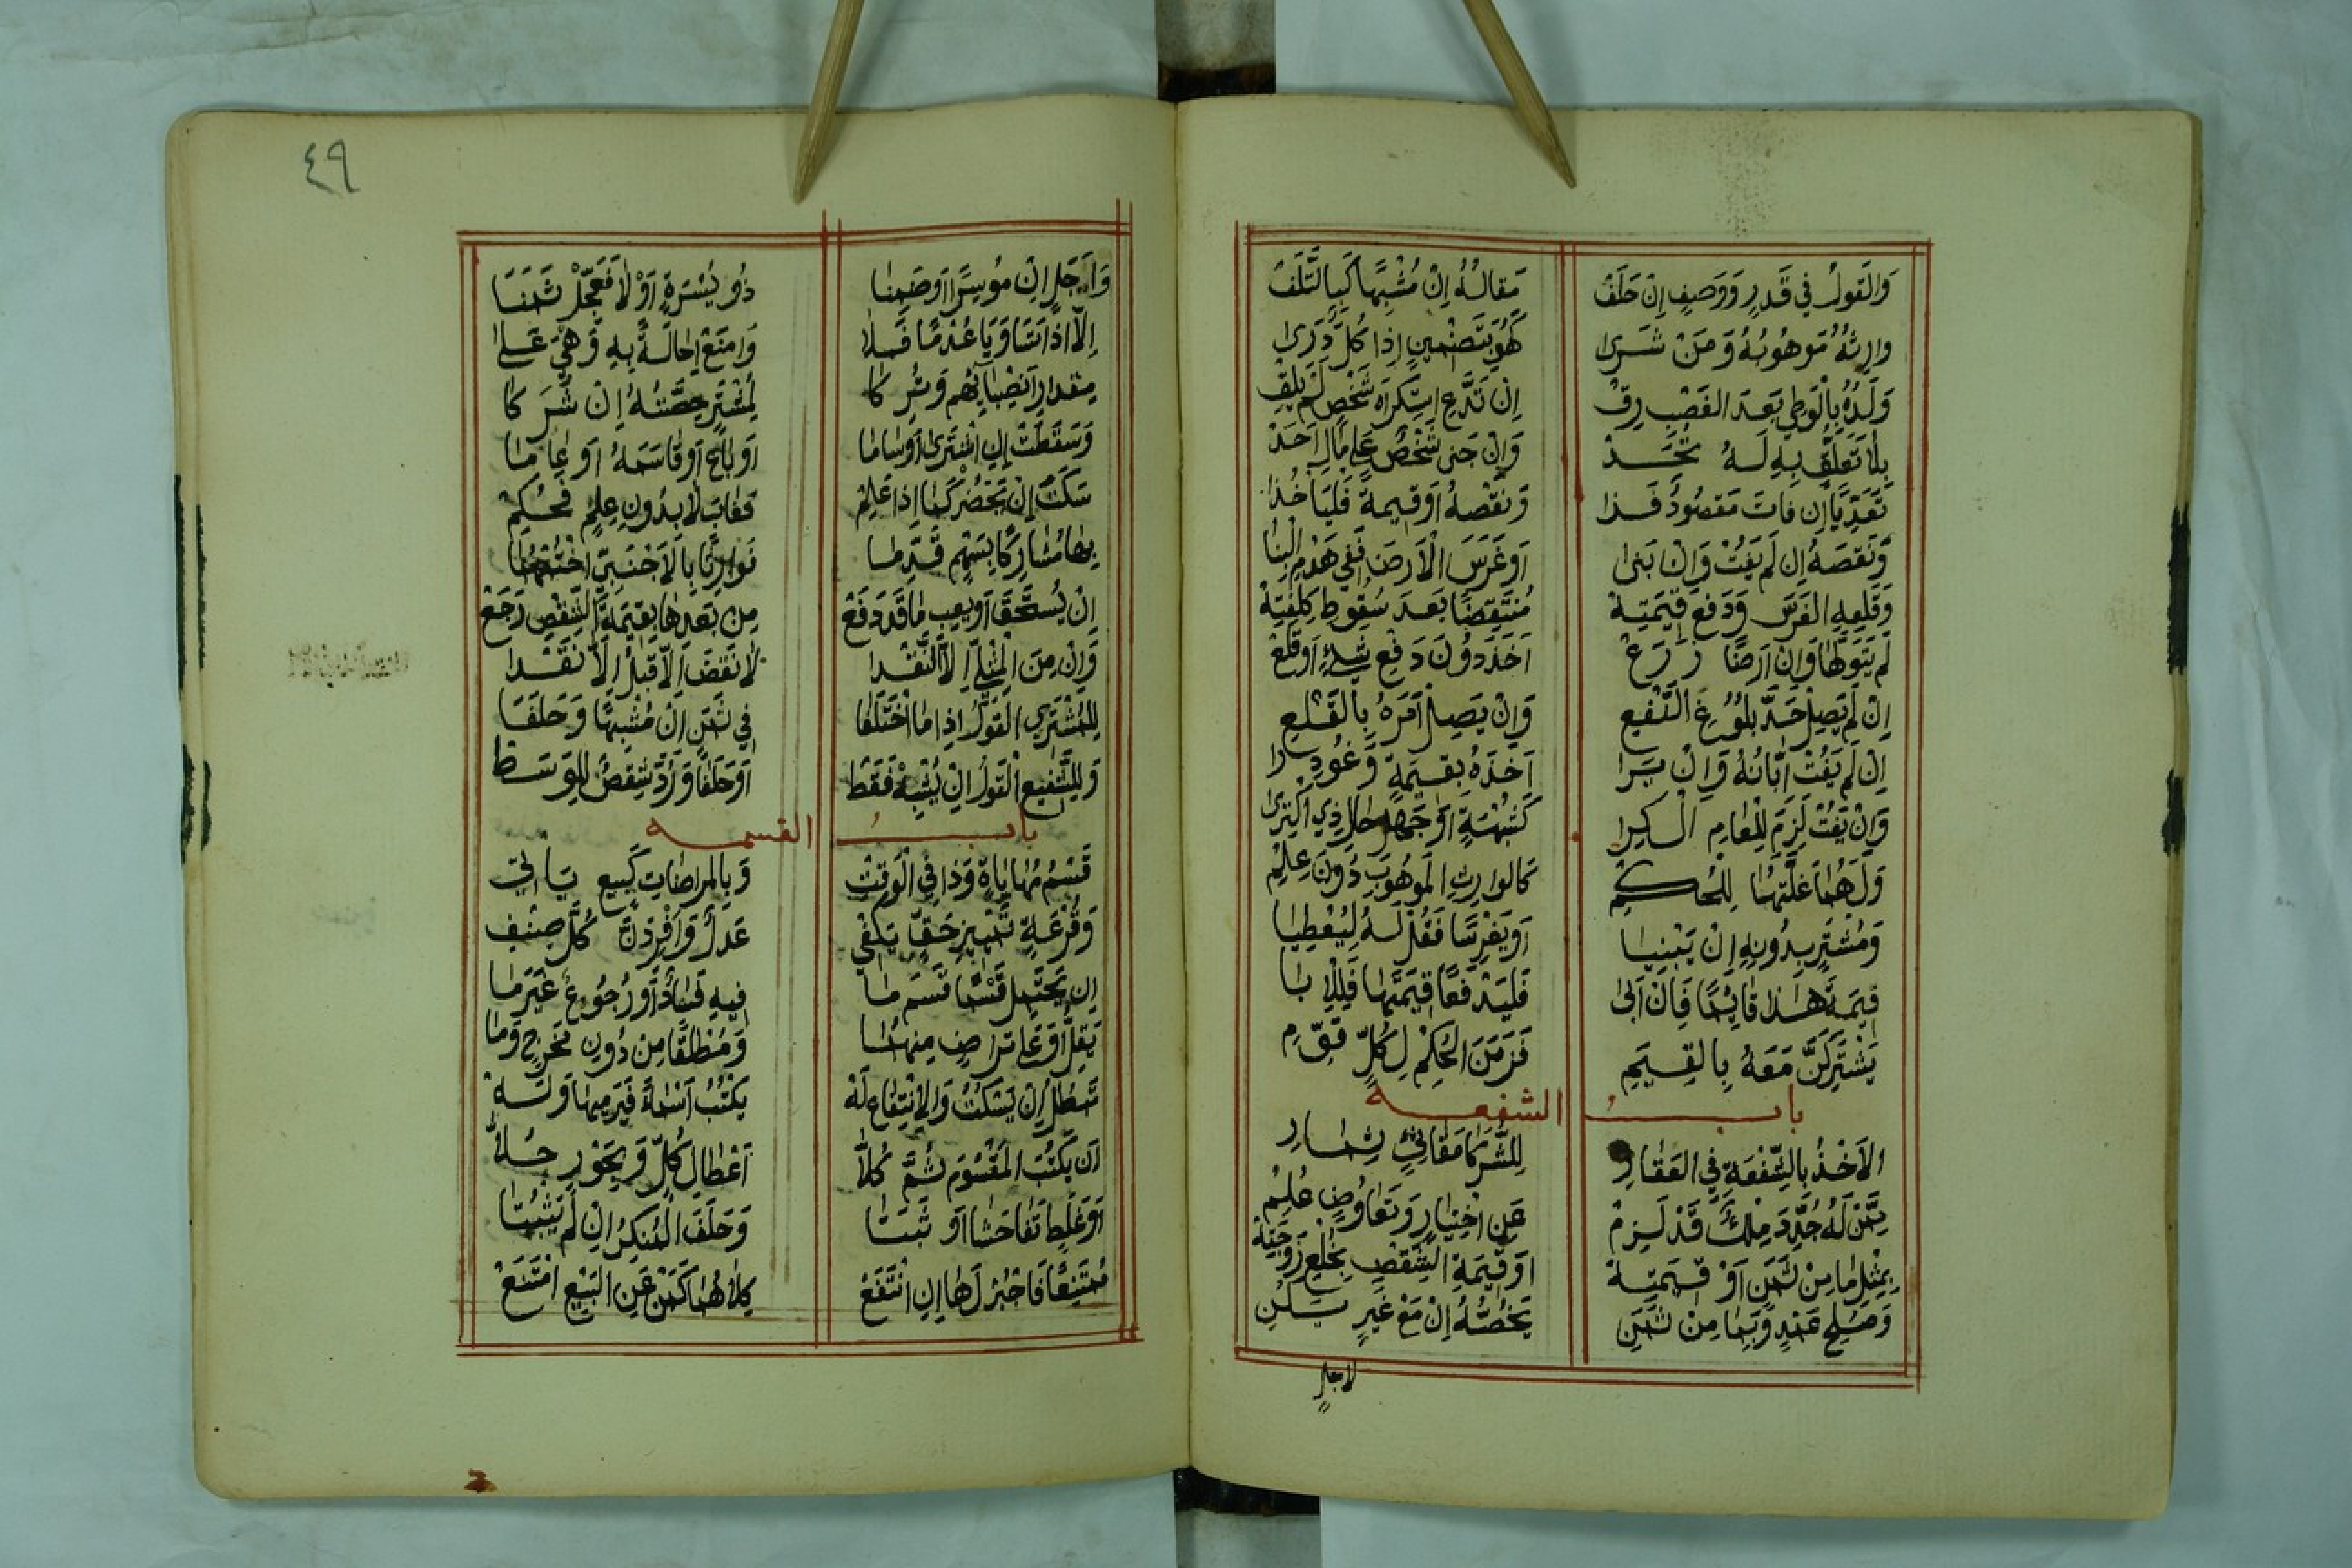 وَالقَولُ في قَدرٍ وَوَصفٍ إِنْ حَلَفْ مَقالَهُ إِنْ مُشْبِهًا كَبِالتَّلَفْ
وارِثُهُ مَوهُوبُهُ وَمَنْ شَرَى كَهُوَ بِتَضْمِينٍ إِذا كُلٌّ دَرَى
وَلَدُهُ بِالْوَطْيِ بَعدَ الغَصْبِ رِقْ إِنْ تَدَّعِ اسْتِكْرَاهَ شَخْصٍ لَمْ يَلِقْ
بِلَا تَعَلُّقٍ بِهِ لَهُ تُحَدْ وَإِنْ جَنى شَخْصٌ عَلى مَالِ أَحَدْ
تَعَدِّيًا إِن فاتَ مَقصُودٌ فَذا وَنَقْصَهُ أَو قِيمَةً فَلْيَأْخُذَا
وَنَقصَهُ إِن لَم يَفُتْ وَإِنْ بَنى أَو غَرَسَ الْأَرضَ فَفي هَدْمِ الْبِنَا
وَقَلعِهِ الغَرْسَ وَدَفعِ قِيمَتِهْ مُنتَقِضًا بَعدَ سُقُوطِ كِلْفَتِهْ
لَم يَتَوَلَّهَا وَإِنْ أَرضًا زَرَعْ أَخَذَ دُونَ دَفْعِ شَيءٍ أَو قَلَعْ
إِنْ لَمْ يَصِلْ حَدَّ بُلُوغِ النَّفْعِ وَإِنْ يَصِلْ أَمَرَهُ بِالقَلْعِ
إِنْ لَمْ يَفُتْ إِبَّانُهُ وَإِنْ يَرَا أَخَذَهُ بِقِيمَةٍ وَغُودِرا
وَإِنْ يَفُتْ لَزِمَ لِلْعَامِ الْكِرا كَشُبْهَةٍ أَو جَهْلِ حالِ ذِي اكْتِرَى
وَلَهُما غَلَّتُهَا لِلْحُكْمِ كَالوارِثِ المَوهُوبِ دُونَ عِلْمِ
وَمُشْتَرٍ بِدُونِهِ إِنْ يَبْنِيا أَو يَغْرِسَا فَقُلْ لَهُ لِيُعْطِيا
قِيمَةَ هَذا قائِمًا فَإِنْ أَبى فَلْيَدْفَعًا قِيمَتَها فَلِلْإِبا
يَشْتَرِكَنَّ مَعَهُ بِالقِيَمِ فَزَمَنَ الحُكْمِ لِكُلٍّ قَوِّمِ
بابُ الشفعه
الأَخْذُ بِالشُّفْعَةِ في العَقَارِ لِلشُّرَكَا مَعْ مَا في ثِمَارِ
مِمَّنْ لَهُ جُدِّدَ مِلْكٌ قَدْ لَزِمْ عَنِ اخْتِيارٍ وَتَعاوُضٍ عُلِمْ
بِمِثْلِ مَا مِنْ ثَمَنٍ أَوْ قِيمَتِهْ أَوْ قِيمَةِ الشِّقْصِ بِخُلْعِ زَوجَتِهْ
وَصُلْحِ عَمْدٍ وَبِمَا مِنْ ثَمَنِ يَخُصُّهُ إِنْ مَعْ غَيرِ يَكُنِ
لاجلٍ
٤٩
وَأَجَلٍ إِنْ مُوسِرًا أَو ضَمِنا ذُو يُسْرَةٍ أَوْ لَا فَعَجِّلْ ثَمَنَا
إِلَّا إِذَا تَسَاوَيَا عُدْمًا فَلا وَامنَعْ إِحالَةً بِهِ وَهْيَ عَلى
مِقدارِ أَنْصِبائِهِم وَتُرِكا لِمُشْتَرٍ حِصَّتُهُ إِنْ شَرَكا
وَسَقَطَتْ إِنِ اشْتَرى أَو سَاما أَو باعَ أَو قاسَمَهُ أَو عاما
سَكَتَ إِنْ يَحْضُرْ كَمَا إِذَا عَلِمْ فَغابَ لا بِدُونِ عِلْمٍ فَحُكِمْ
بِها مُشارِكًا بِسَهْمٍ قَدِّما فَوارِثًا بِالأَجْنَبِيِّ اخْتُتِمَا
انْ يُسْتَحَقَّ أَو يَعِبْ مَا قَدْ دَفَعْ مِن بَعْدِها بِقِيمَةِ الشِّقْصِ رَجَعْ
وَإِنْ مِنَ الْمِثْلِيِّ إِلَّا النَّقْدا لا نَقْضَ إِلَّا قَبْلُ إِلَّا نَقْدا
لِلمُشْتَرِي القَولُ إِذا مَا اخْتَلَفا في ثَمَنٍ إِنْ مُشْبِهًا وَحَلَفَا
وَلِلشَّفِيعِ الْقَوْلُ إِنْ يُشْبِهْ فَقَطْ أَو حَلَفا وَرُدَّ شِقْصٌ لِلوَسَطْ
بابُ القسمه
قَسْمُ مُهَايَاةٍ وَذا فِي الْوَقْتِ وَبِالمُراضَاتِ كَبَيعٍ يَاتي
وَقُرْعَةٍ تَمْيِيزِ حَقٍّ يَكْفي عَدْلٌ وَأَفْرِدَنَّ كُلَّ صِنْفِ
إِن يَحْتَمِلْ قَسْمًا قَسَمَ مَا فِيهِ فَسَادٌ أَو رُجُوعٌ غَيرَ مَا
يَقِلُّ أَو عَلى تَراضٍ مِنهُمَا وَمُطْلَقًا مِنْ دُونِ تَخَرُّجٍ وَما
تَبْطُلُ إِنْ يَسْكُتْ وَالِانْتِفَاعَ لَهْ يَكْتُبُ أَسْماءً فَيَرْمِيهَا وَلَهْ
أَن يَكْتُبَ المَقْسُومَ ثُمَّ كُلَّا أَعْطَى لِكُلٍّ وَبِجَوْرٍ حُلَّا
أَو غَلَطٍ تَفَاحَشا أَو ثَبَتَا وَحَلَفَ المُنكِرُ إِنْ لَم يَثْبُتا
مُمْتَنِعًا فَاجْبُرْ لَها إِنِ انْتَفَعْ كِلاهُمَا كَمَنْ عَنِ البَيْعِ امْتَنَعْ